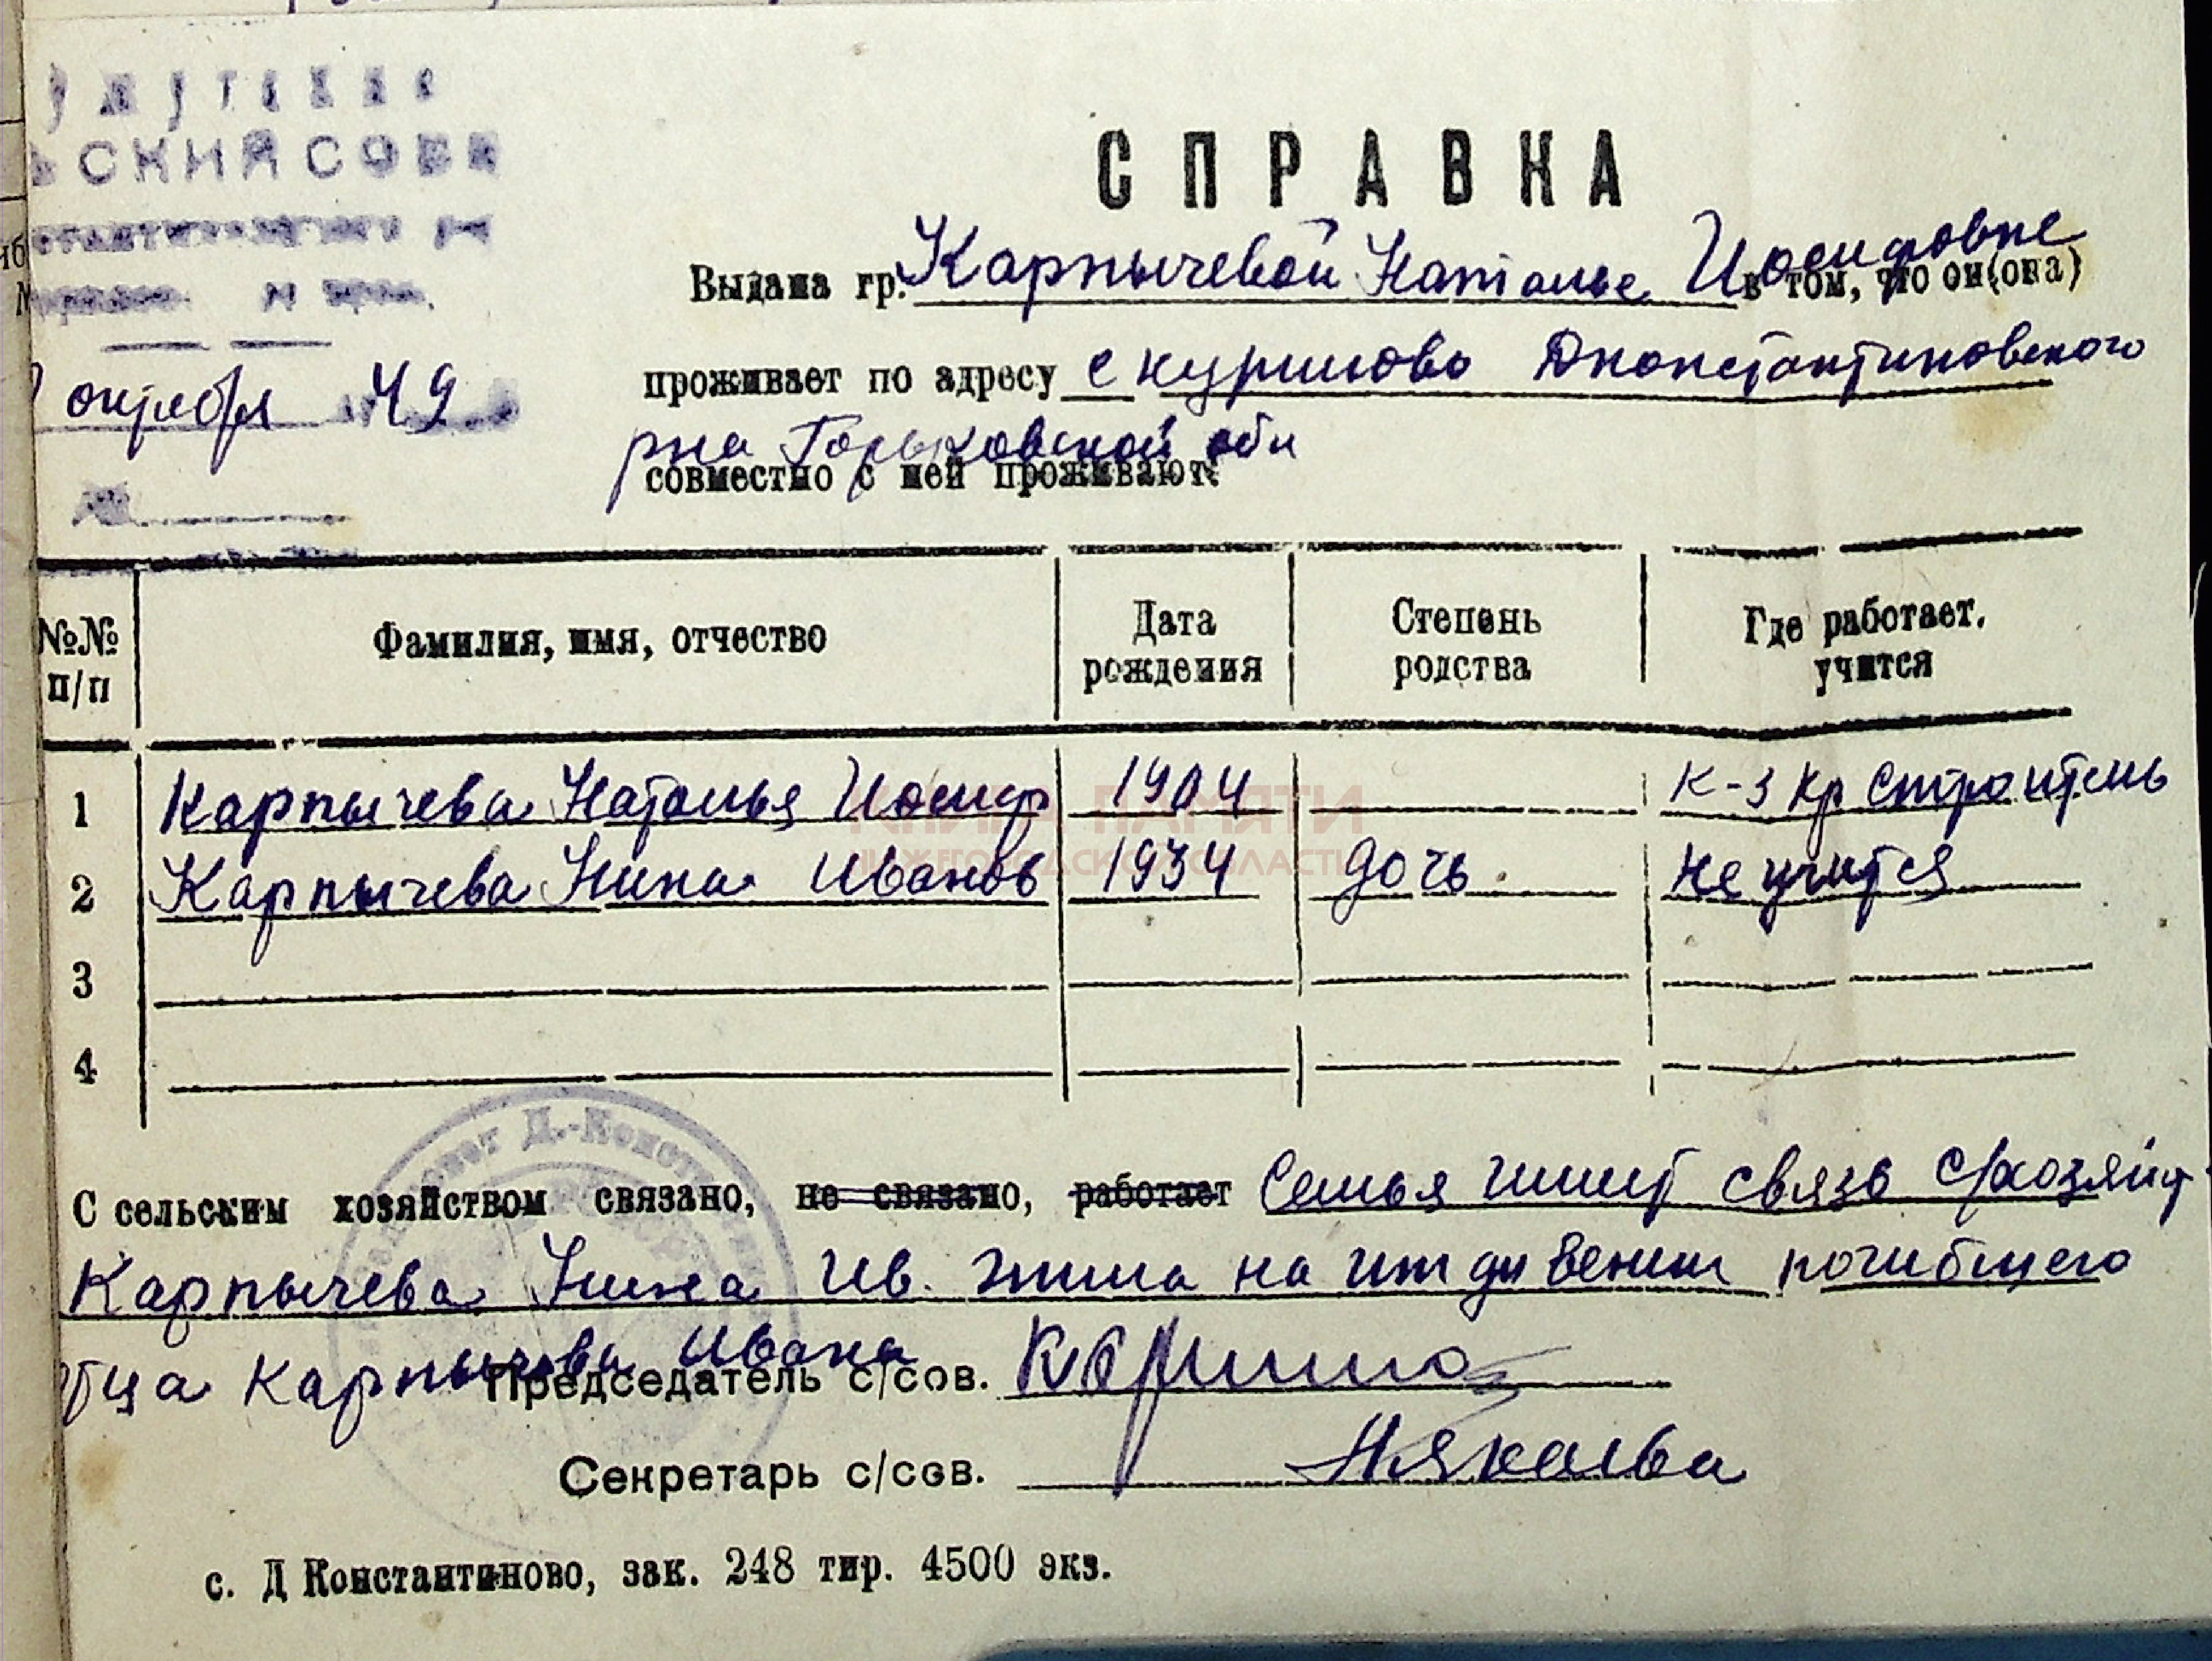 СКИЙ СОВЕ
октября 49
СПРАВКА
Выдана гр. Карпычевой Наталье Иосифовне в том, что он(она)
проживает по адресу с куришово Дконстантиновского
рна Горьковской обл
совместно с ней проживают:
№№ п/п
Фамилия, имя, отчество
Дата рождения
Степень родства
Где работает, учится
1 Карпычева Наталья Иосиф 1904 К-з Кр Строитель
2 Карпычева Нина Иванов 1934 дочь не учится
3
4
КНИГА ПАМЯТИ
НИЖЕГОРОДСКОЙ ОБЛАСТИ
С сельским хозяйством связано, не связано, работает Семья имеет связь с/хозяйст
Карпычева Нина Ив. жила на иждивении погибшего
отца Карпычева Ивана
Председатель с/сов.
Секретарь с/сов.
с. Д Константиново, зак. 248 тир. 4500 экз.